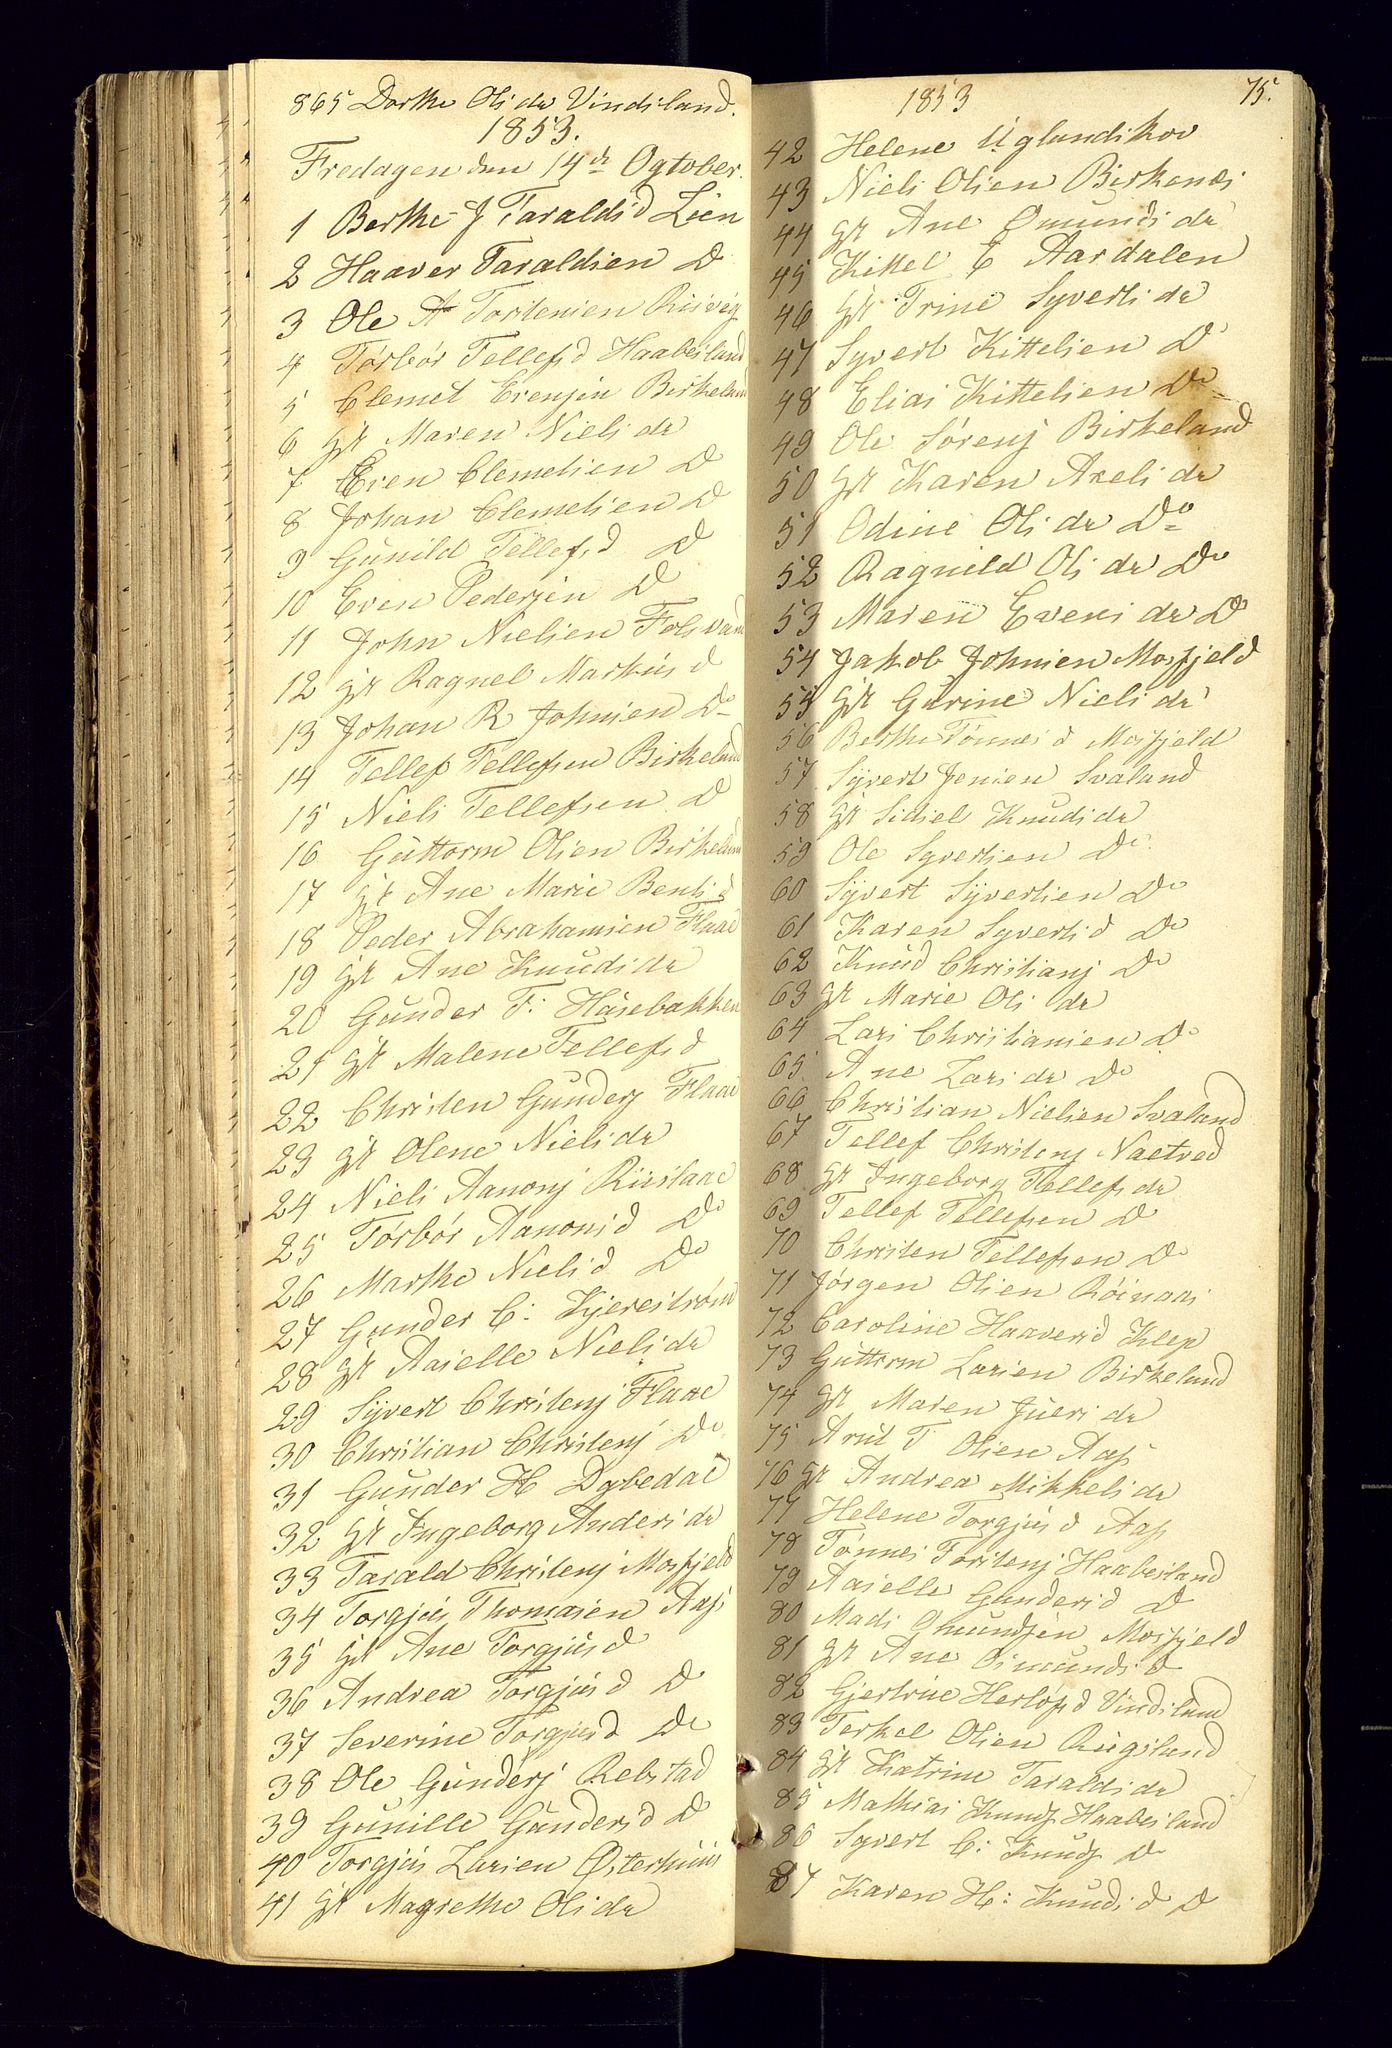 865 Dorthe Olsda Vindsland.
1853.
Fredagen den 14de Ogtober
1 Berthe J Taraldsd Lien
2 Haaver Taraldsen Do
3 Ole A Torstensen Risvég
4 Torbór Tellefsd Haabesland
5 Clemet Evensjen Birkeland
6 gst Maren Nielsda
7 Even Clemetsen Do
8 Johan Clemetsen Do
9 Gúnild Tellefsd Do
10 Even Pedersjen Do
11 John Nielsen Folsvand
12 gst Ragnel Markúsd
13 Johan R Johnsen Do
14 Tellef Tellefsen Birkeland
15 Niels Tellefsen Do
16 Gúttorm Olsen Birkeland
17 gst Ane Marie Bentsd
18 Peder Abrahamsen Flaae
19 gst Ane Knudsda
20 Gúnder F: Hásebakken
21 gst Malene Tellefsd
22 Christen Gúndersj Flaae
23 gst Olene Nielsda
24 Niels Aanonsj Riislaae
25 Tórbór Aanonsd Do
26 Marthe Nielsd Do
27 Gunder C: Kjerestróm
28 gst Aaselle Nielsda
29 Syvert Christensj Flaae
30 Christian Christensj Do
31 Gúnder H Dybedal
32 gst Ingeborg Andersda
33 Tarald Christensj Mosfjeld
34 Torgjús Thomasen Aas
35 gst Ane Torgjúsd
36 Andrea Torgjúsd Do
37 Severine Torgjúsd Do
38 Ole Gúndersj Rebstad
39 Gúnille Gúndersd Do
40 Torgjús Larsen Østerhúus
41 gst Magrethe Olsda
1853 75.
42 Helene Uglandskov
43 Niels Olsen Birkenæs
44 gst Ane Omundsda
45 Kittel E Aardalen
46 gst Trine Syvertsda
47 Syvert Kittelsen Do
48 Elias Kittelsen Do
49 Ole Sórensj Birkeland
50 gst Karen Axelsda
51 Odine Olsda Do
52 Ragnild Olsda Do
53 Maren Evensda Do
54 Jakob Johnsen Mosfjeld
55 gst Gúrine Nielsda
56 Berthe Tónnesd Mosfjeld
57 Syvert Jensen Svaland
58 gst Sidsel Knudsda
59 Ole Syvertsen Do
60 Syvert Syvertsen Do
61 Karen Syvertsd Do
62 Knúd Christiansj Do
63 gst Marie Olsda
64 Lars Christiansen Do
65 Ane Larsda Do
66 Christian Nielsen Svaland
67 Tellef Christensj Nætved
68 gst Ingeborg Tellefsda
69 Tellef Tellefsen Do
70 Christen Tellefsen Do
71 Jórgen Olsen Róinaas
72 Caroline Haaversd Klep
73 Gúttorm Larsen Birkeland
74 gst Maren Juersda
75 Arnt T Olsen Aas
76 gst Andrea Mikkelsda
77 Helene Torgjúsd Aas
78 Tónnes Torstensj Haabesland
79 Aaselle Gúndersd Do
80 Mads Omundsen Mosfjeld
81 gst Ane Osmundsd
82 Gjertrue Herlofsd Vindsland
83 Terkel Olsen Rúgsland
84 gst Katrine Taraldsda
85 Mathias Knudsj Haabesland
86 Syvert C: Knúdsj Do
87 Karen H: Knudsd Do